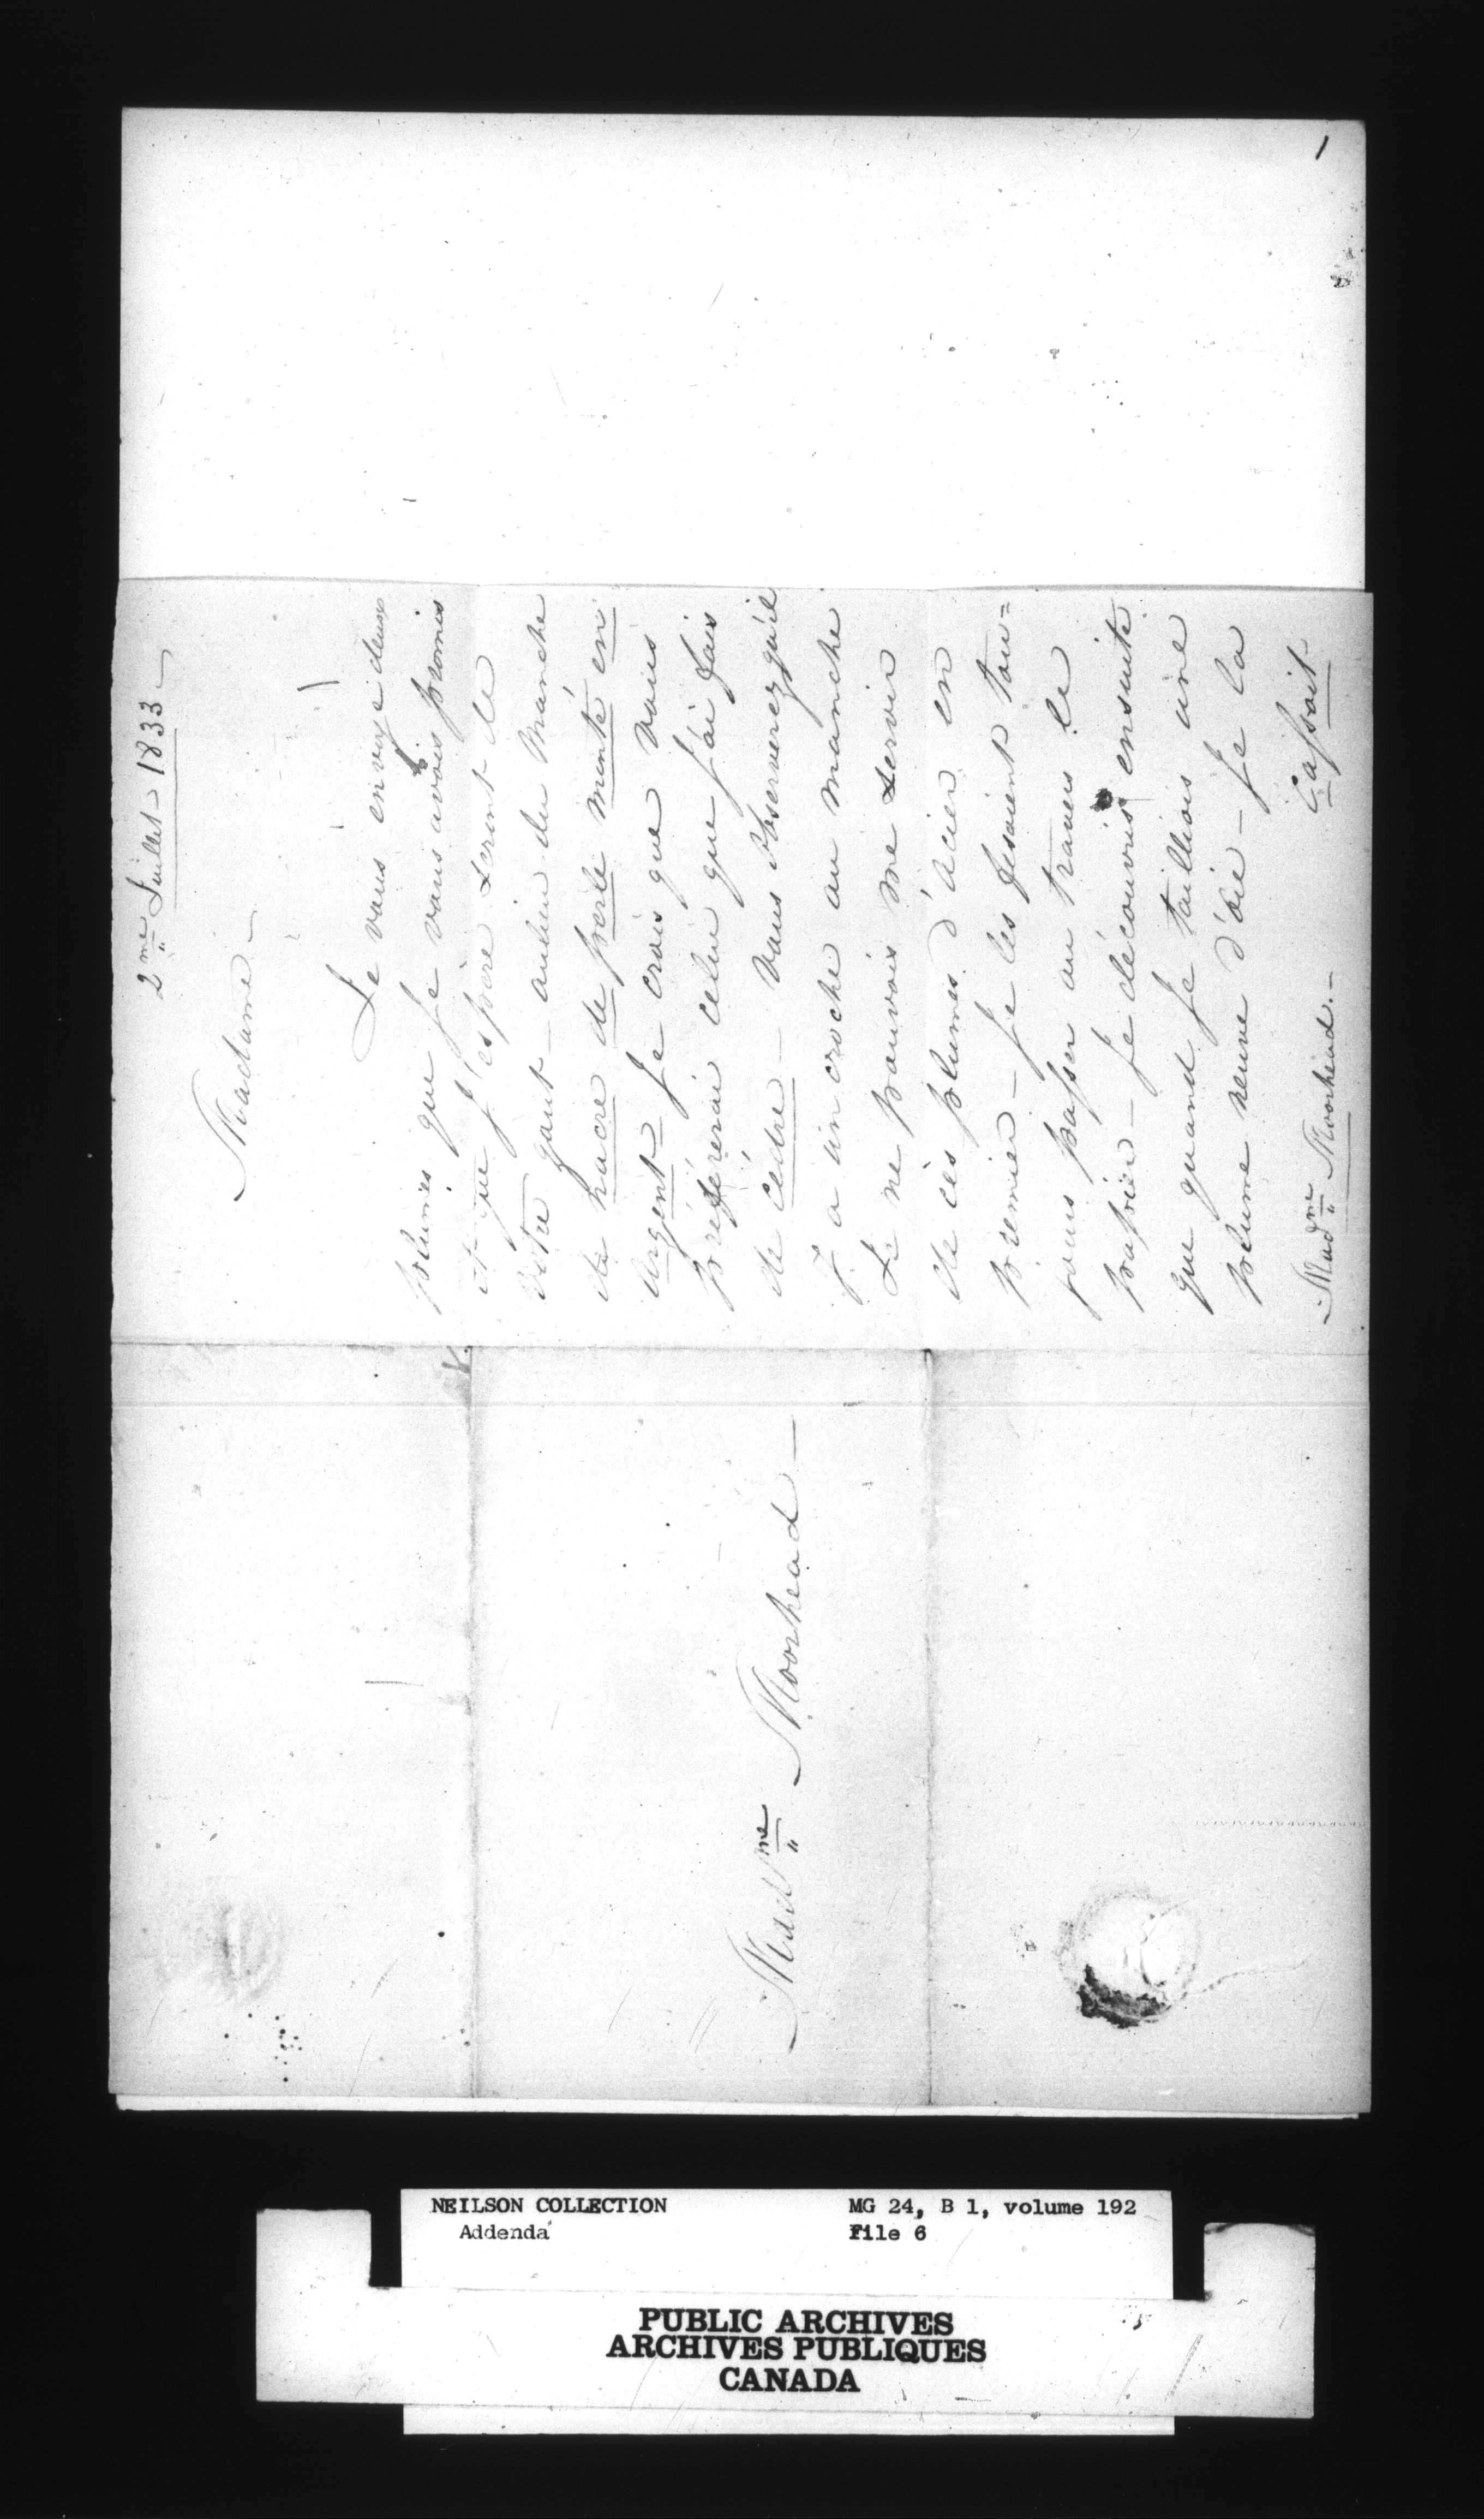 1
2me Juillet 1833 —
Madame —
Je vous envoye deux
plumes que je vous avois promis
et que j'espère seront de
votre gout — aulieu du Manche
de nacre de perle monté en
Argent — Je crois que vous
préférerai celui que j'ai fais
de cedre — vous observerez qu'il
y a un croche au manche
Je ne pouvois me servir
de ces plumes d'acier en
premier — Je les fesoient tou=
jours passer au travers le
papier — Je découvris ensuite
que quand je tailliois une
plume neuve d'oie — Je la
Cassoit
Madme Moorhead. —
Madme Moorhead —
NEILSON COLLECTION
Addenda
MG 24, B 1, volume 192
File 6
PUBLIC ARCHIVES
ARCHIVES PUBLIQUES
CANADA